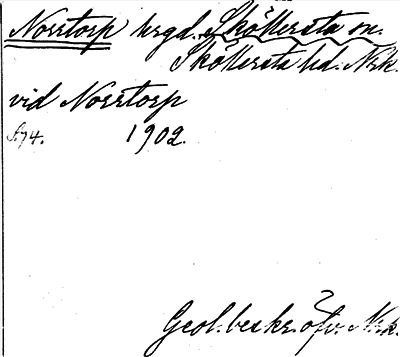 Norrtorp hrgd. Sköllersta sn.
Sköllersta hd. Nrk.
vid Norrtorp
S. 74. 1902.
Geol. beskr. öfv. Nrk.